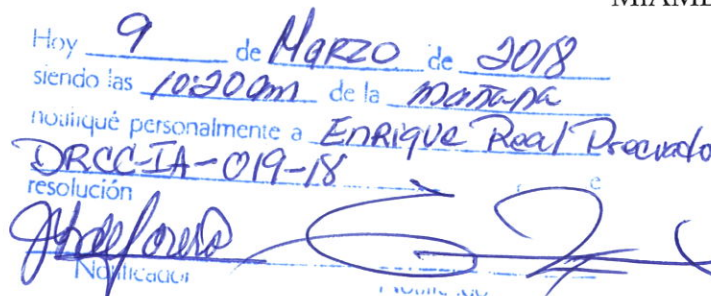 Hoy 9 de Marzo de 2018
siendo las 10:20am de la mañana
notifiqué personalmente a Enrique Real Preciado
DRCC-IA-019-18
resolución
Notificador